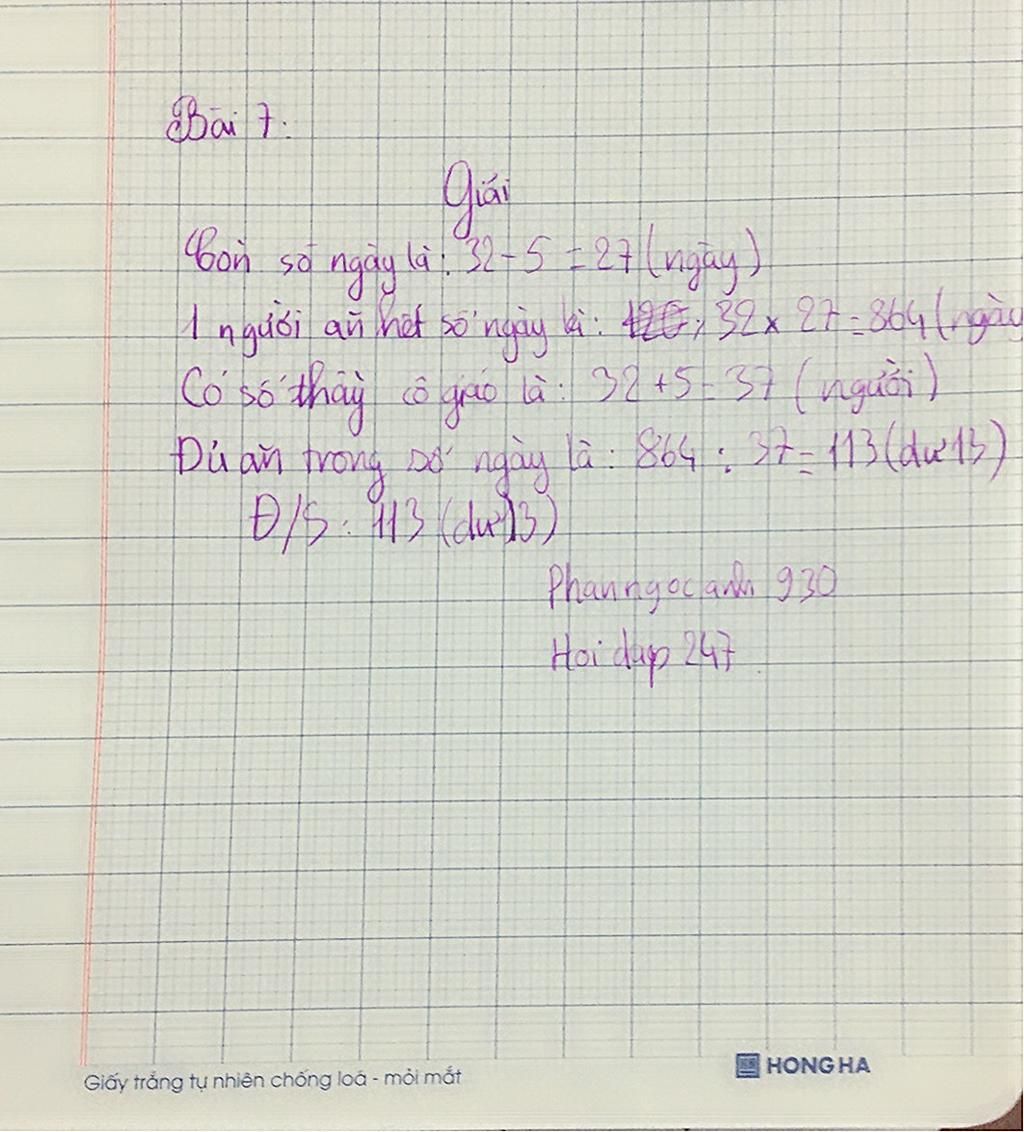 Bài 7:
Giải
Còn số ngày là: 32 - 5 = 27 (ngày)
1 người ăn hết số ngày là: 32 x 27 = 864 (ngày
Có số thầy cô giáo là: 32 + 5 = 37 (người)
Đủ ăn trong số ngày là: 864 : 37 = 113 (dư 13)
Đ/S: 113 (dư 13)
Phanngocanh 930
Hoi dap 247
Giấy trắng tự nhiên chống loá - mỏi mắt
HONG HA